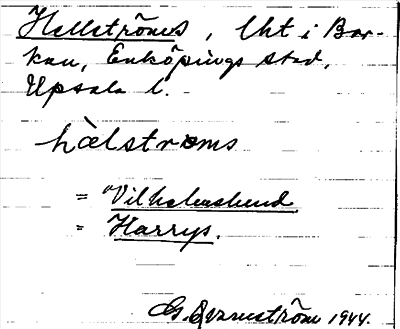 Hellströms, lht i Bar-
kan, Enköpings stad,
Upsala l.
hàlstrøms
= Vilhelmslund
= Harrys.
G. Qvarnström 1944.